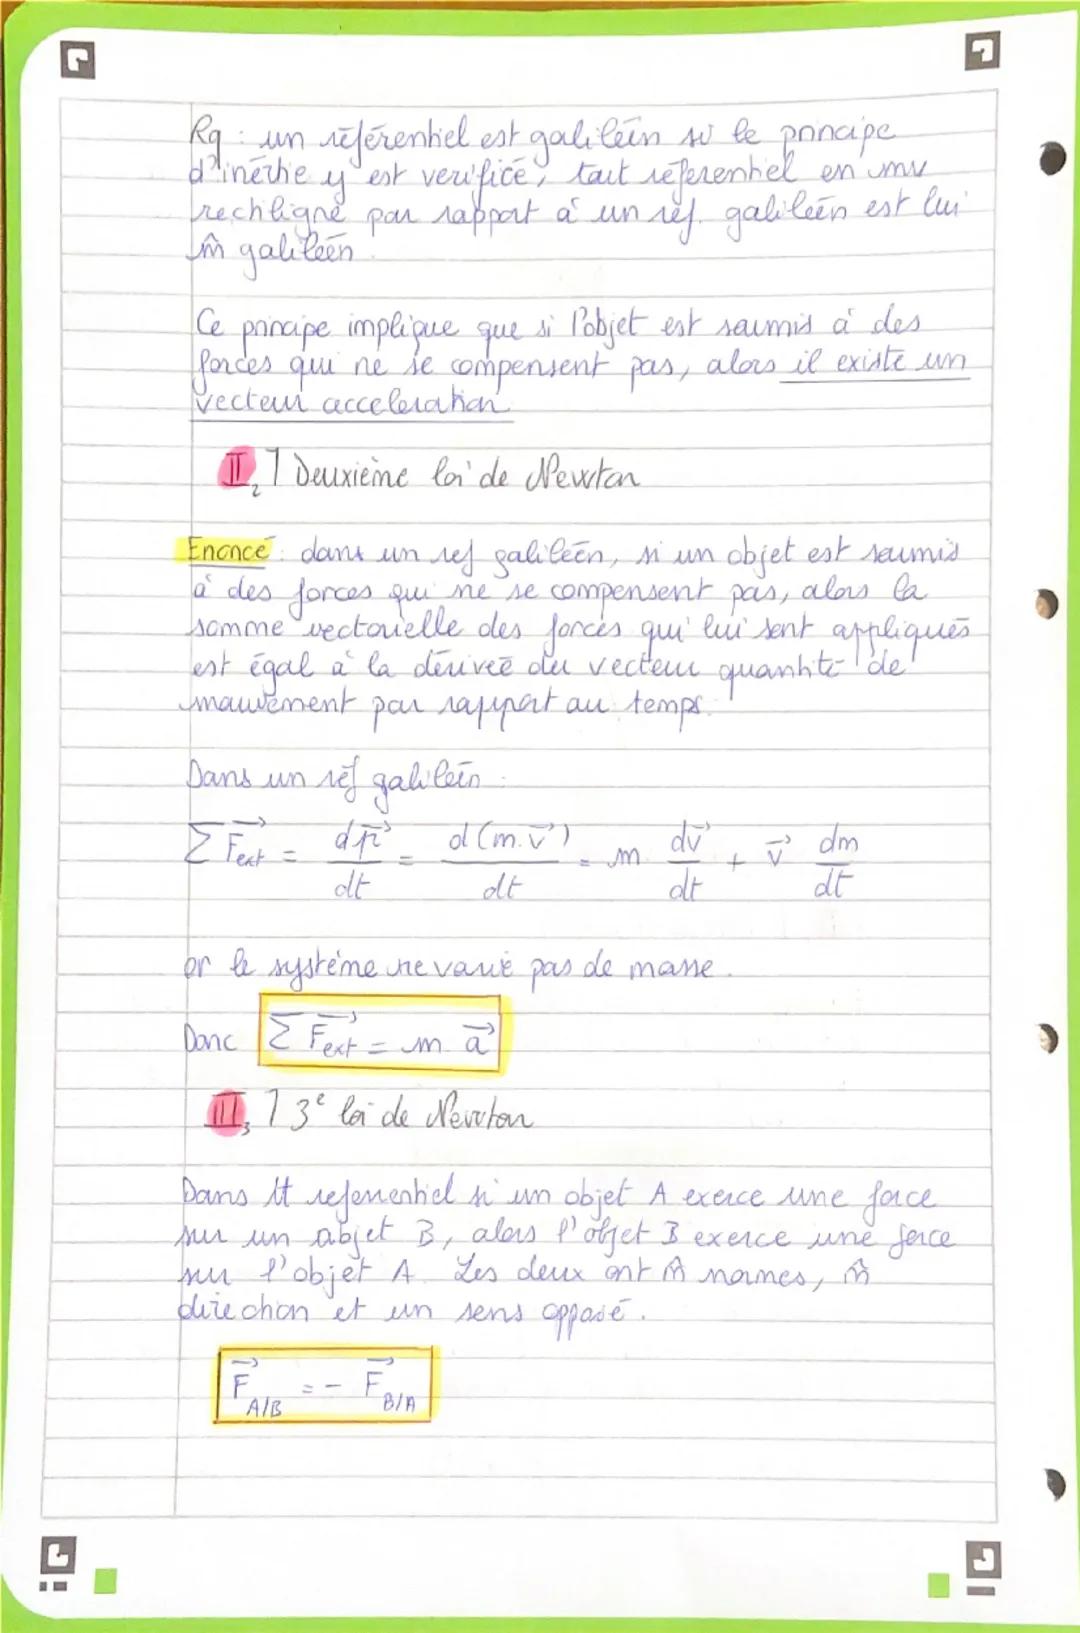 Rq : un référentiel est galiléen si le principe
d'inértie y est verifiée, tout réferentiel en mv
rectiligne par rapport à un réf. galiléen est lui
m̂ galiléen.
Ce principe implique que si l'objet est soumis à des
forces qui ne se compensent pas, alors il existe un
vecteur acceleration
II, 2 ] Deuxième loi de Newton
Enoncé : dans un ref galiléen, si un objet est soumis
à des forces qui ne se compensent pas, alors la
somme vectorielle des forces qui lui sont appliqués
est égal à la dérivée du vecteur quantité de
mouvement par rapport au temps.
Dans un réf galiléen :
∑ F⃗ext = dp⃗/dt = d(m.v⃗)/dt = m dv⃗/dt + v⃗ dm/dt
or le système ne varie pas de masse.
Donc ∑ F⃗ext = m a⃗
III, 3 ] 3e loi de Newton
Dans tt referentiel si un objet A exerce une force
sur un objet B, alors l'objet B exerce une force
sur l'objet A. Les deux ont m̂ normes, m̂
direction et un sens opposé.
F⃗ A/B = - F⃗ B/A